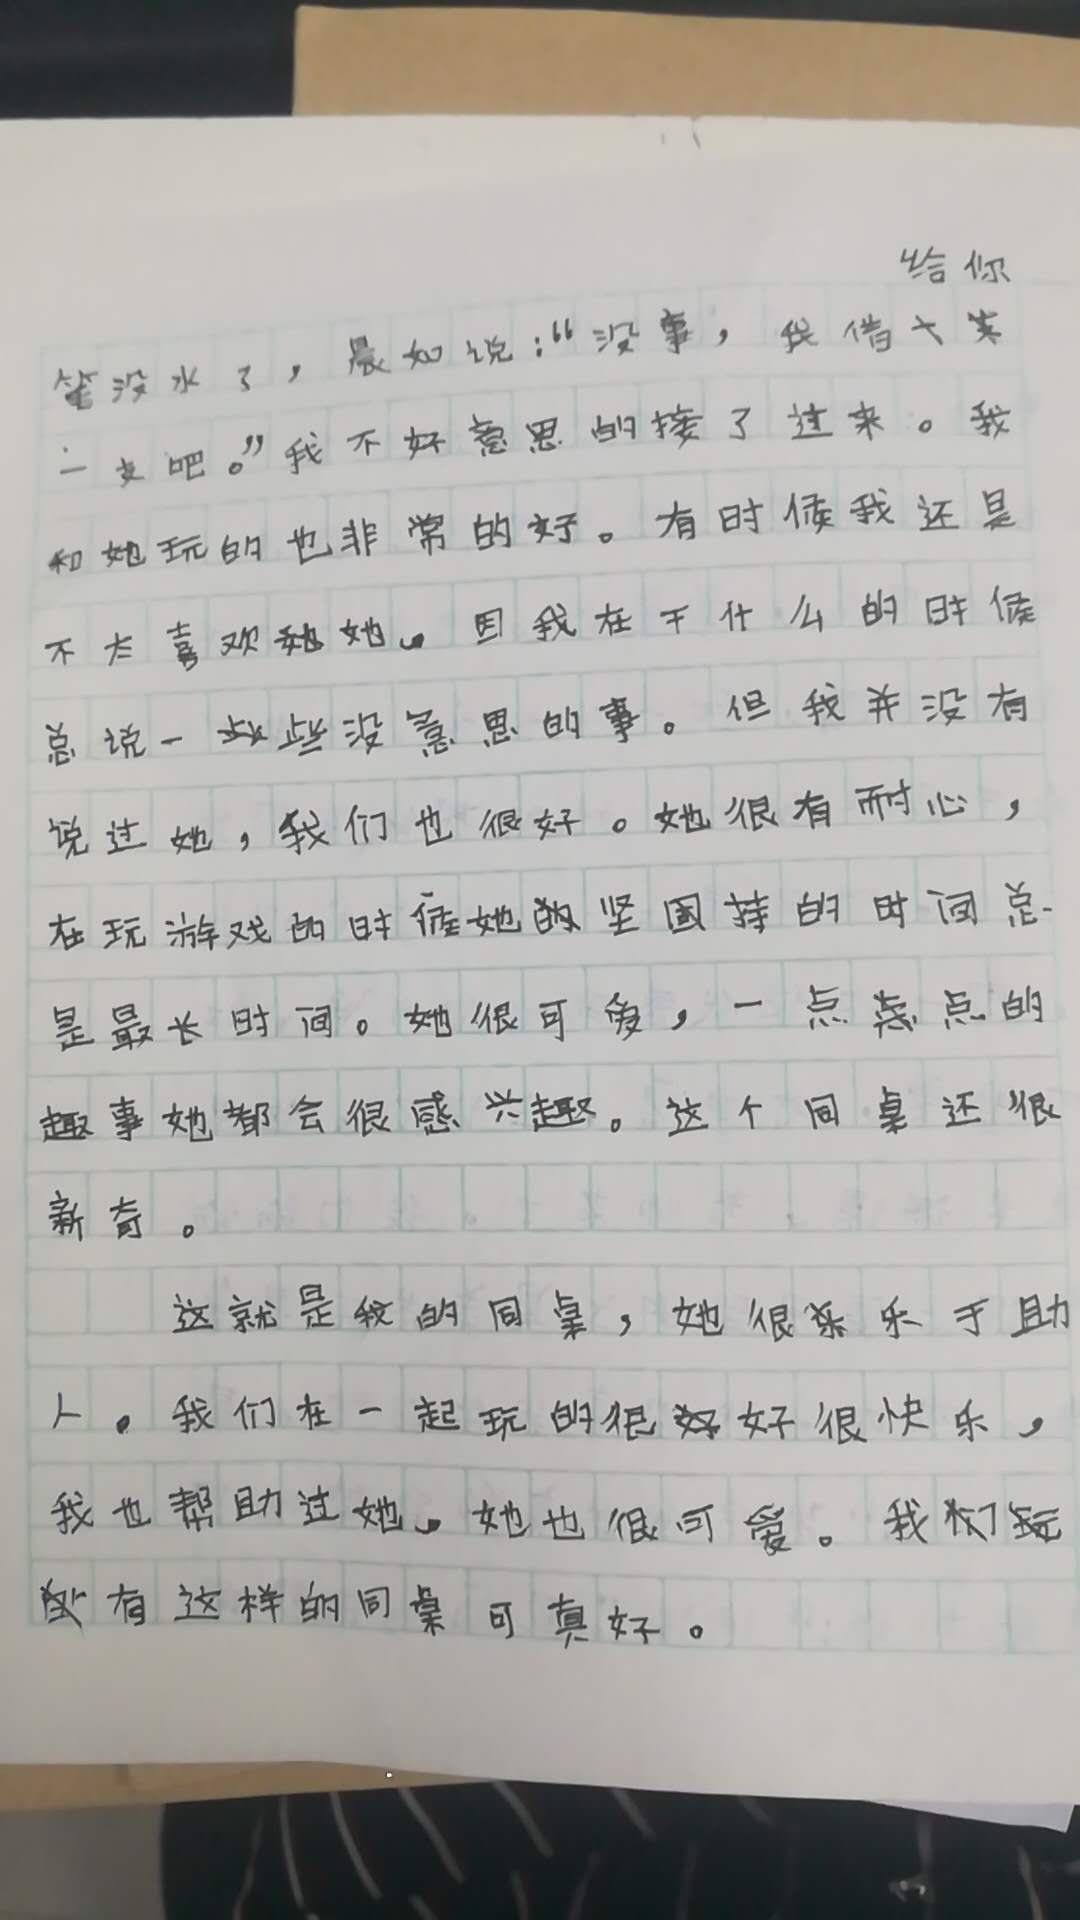 给你
笔没水了，晨如说：“没事，我借
一支吧。”我不好意思的接了过来。我
和她玩的也非常的好。有时候我还是
不太喜欢她。因我在干什么的时候
总说一些没意思的事。但我并没有
说过她，我们也很好。她很有耐心，
在玩游戏的时候她坚持的时间总
是最长时间。她很可爱，一点点的
趣事她都会很感兴趣。这个同桌还很
新奇。
这就是我的同桌，她很乐于助
人。我们在一起玩的很好很快乐，
我也帮助过她。她也很可爱。我们
有这样的同桌可真好。